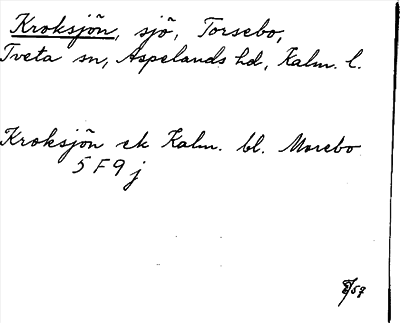 Kroksjön, sjö, Torsebo,
Tveta sn, Aspelands hd, Kalm. l.
Kroksjön ek Kalm. bl. Morebo
5 F 9 j